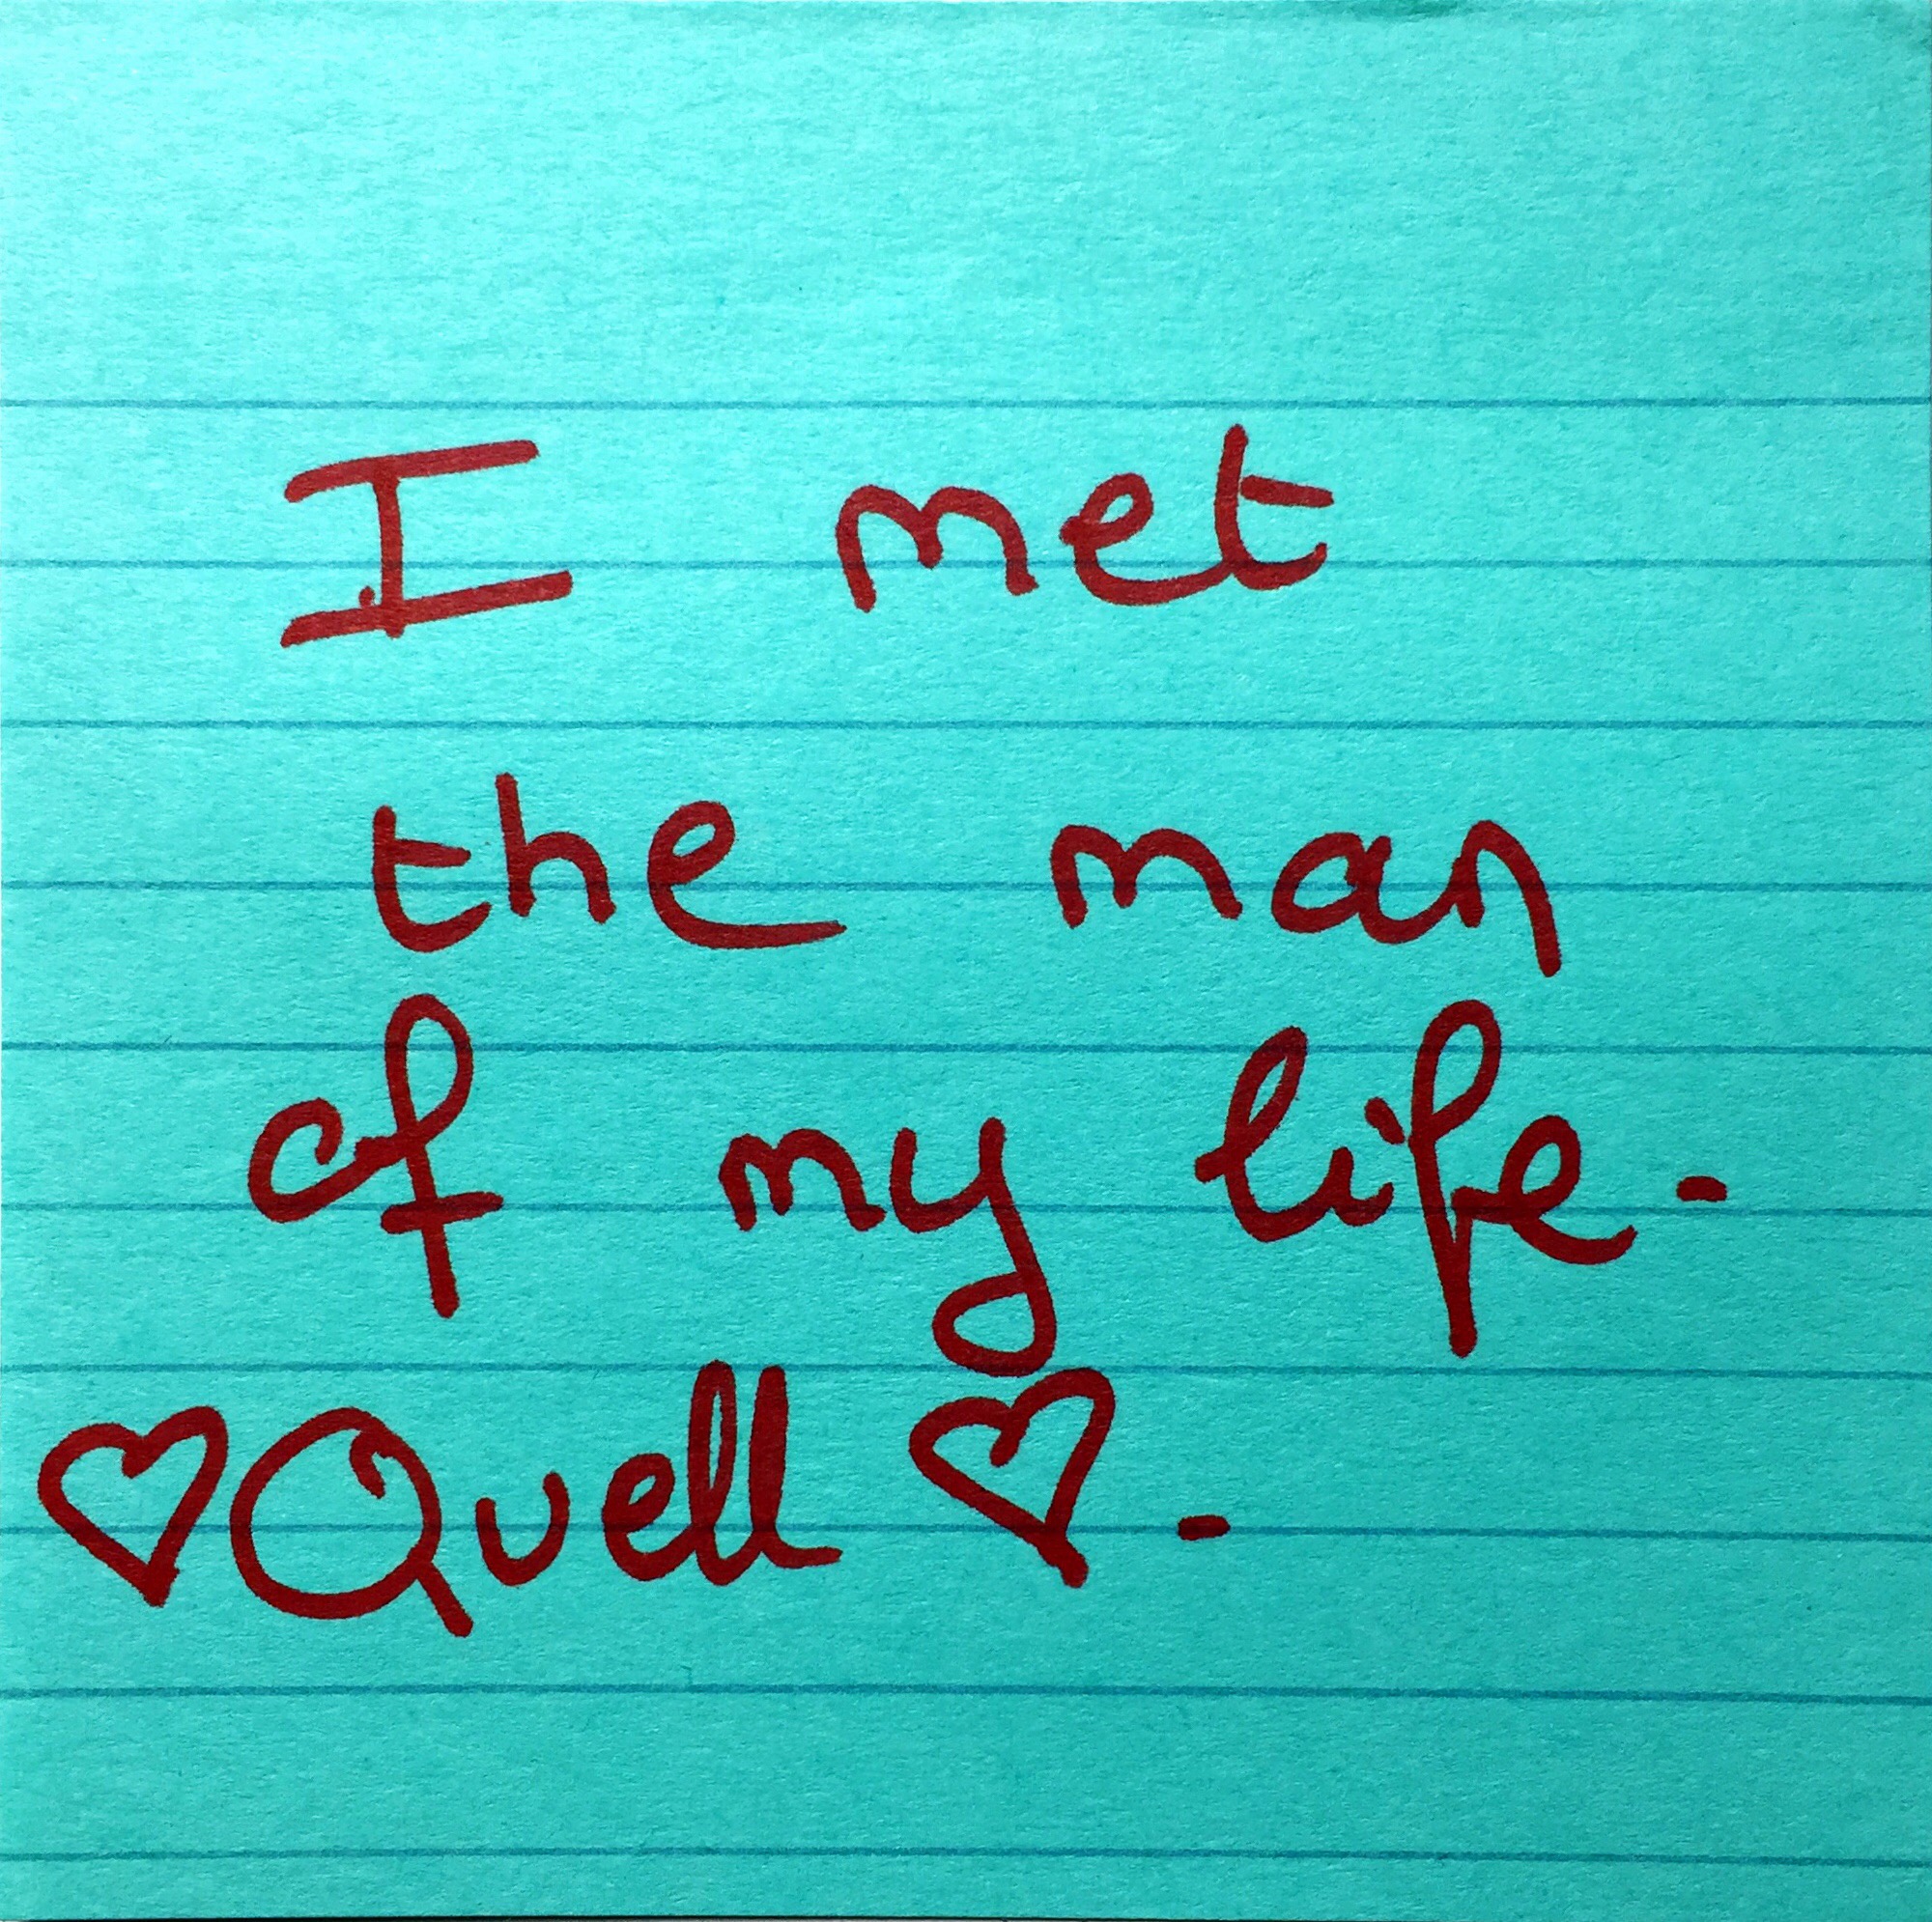 I met
the man
of my life.
♡Quell ♡.